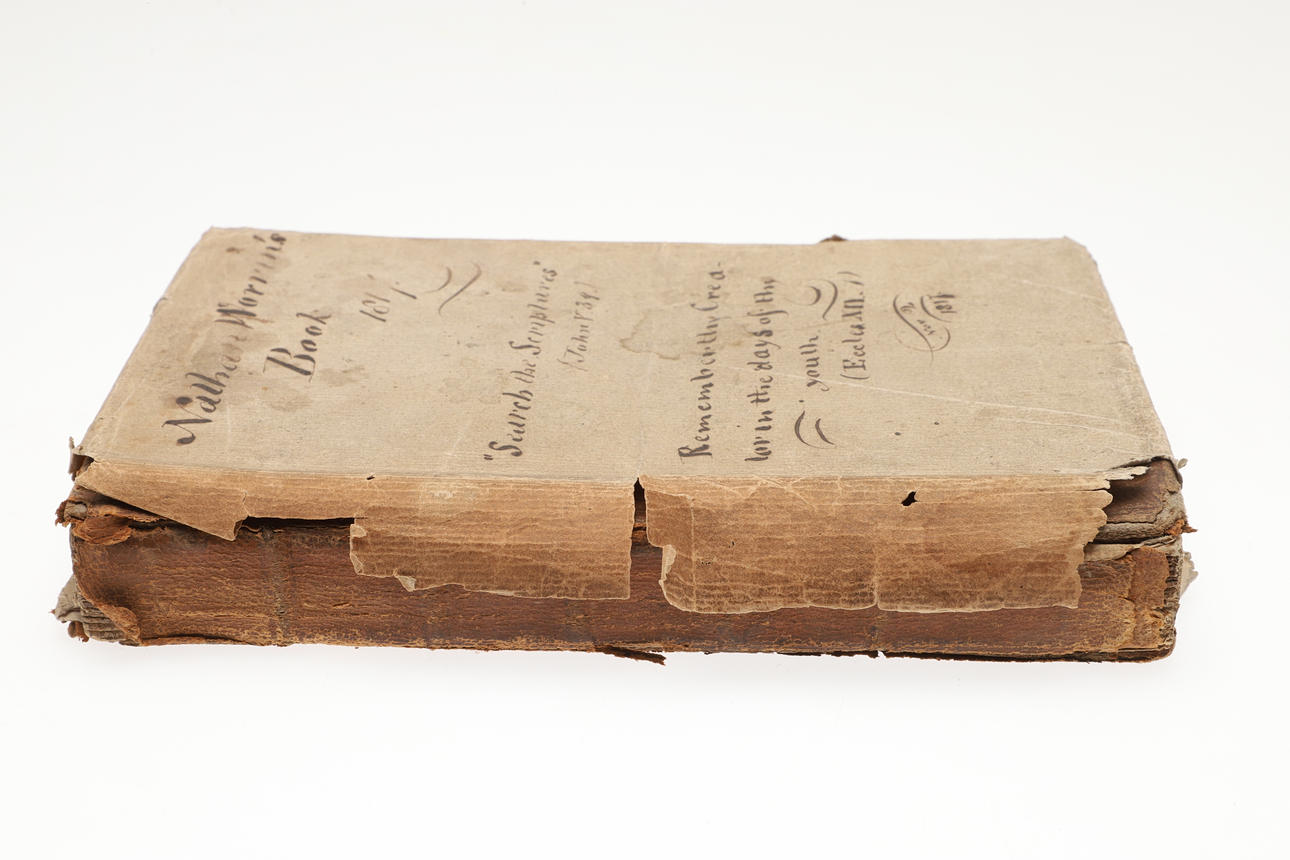 Nathan Morrin's
Book
"Search the Scriptures"
(John V 39)
Remember thy Crea-
tor in the days of thy
youth.
(Eccles XII. 1)